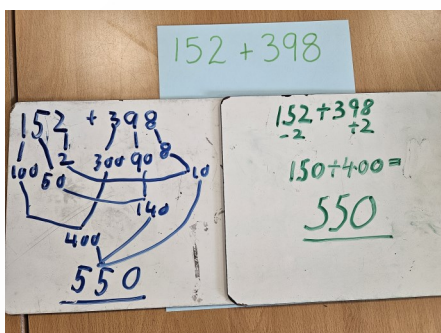 152 + 398
152 + 398
100 50 2 300 90 8 10
140
400
550
152 + 398
-2 +2
150 + 400 =
550